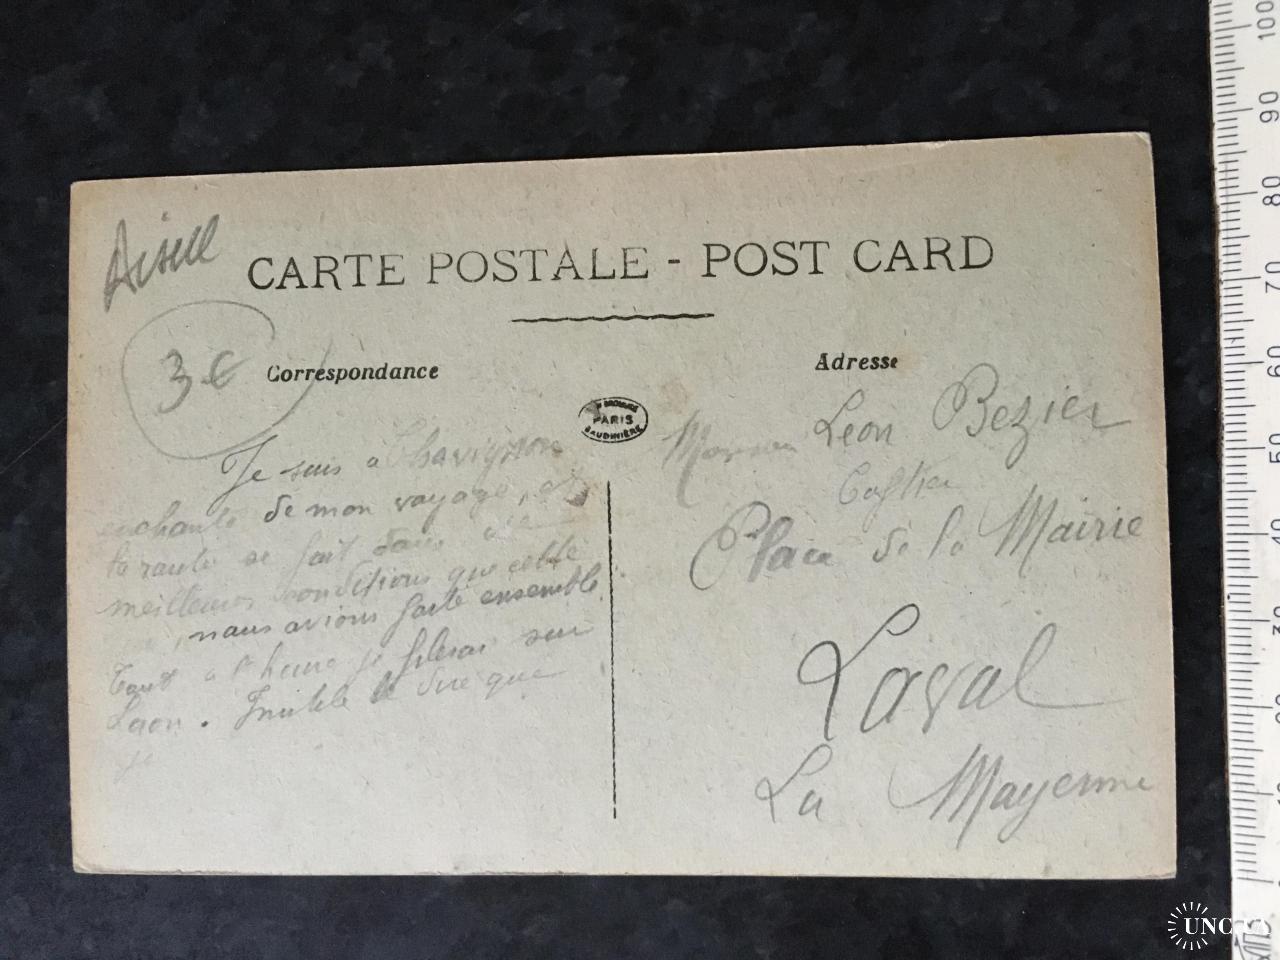 Aisne
CARTE POSTALE - POST CARD
3 €
Correspondance
Adresse
PARIS
BAUDINIÈRE
Je suis à Chavignon
enchanté de mon voyage, et
la route se fait dans de
meilleures conditions que celle
nous avions faite ensemble.
Tout à l'heure je filerai sur
Laon. Inutile de dire que
je
Monsieur Léon Bezier
Place de la Mairie
Laval
La Mayenne
100
90
80
70
60
50
40
30